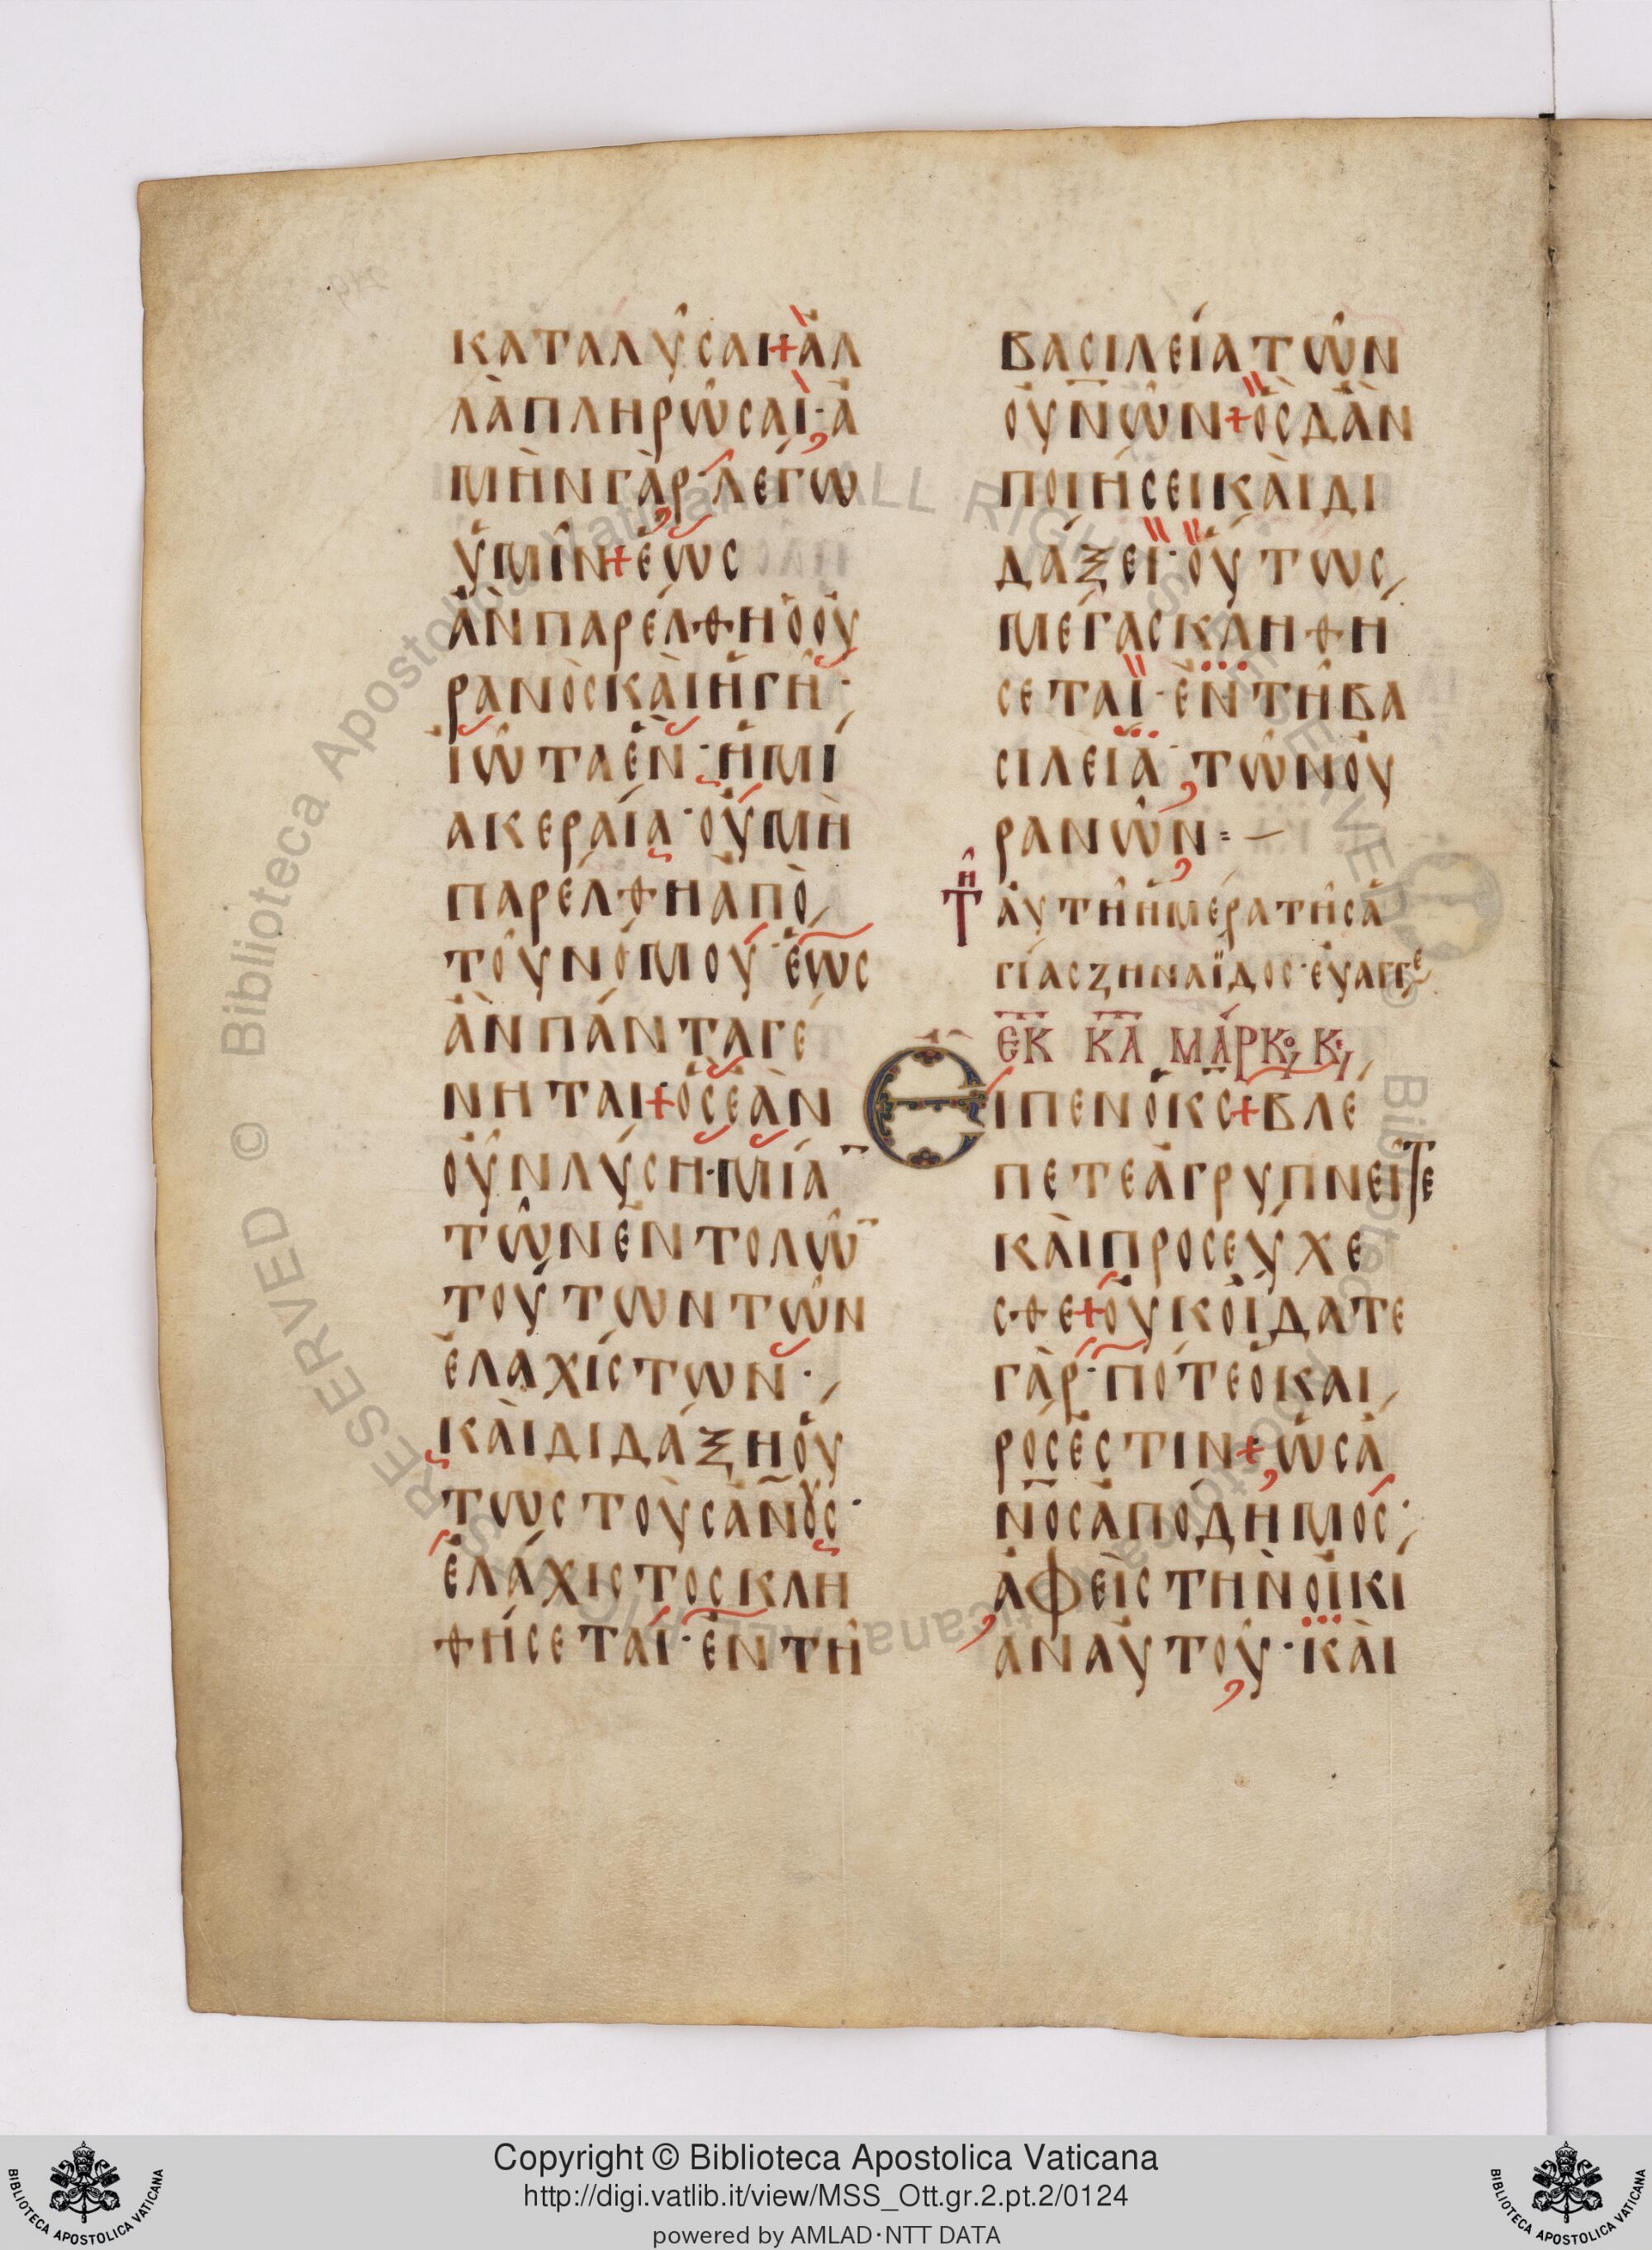 καταλῦσαι + ἀλ
λὰ πληρῶσαι · ἀ
μὴν γὰρ · λέγω
ὑμῖν + ἕως
ἂν παρέλθη ὁ οὐ
ρανὸς καὶ ἡ γῆ ·
ἰῶτα ἓν · ἢ μί
α κεραία · οὐ μὴ
παρέλθη ἀπὸ
τοῦ νόμου · ἕως
ἂν πάντα γέ
νηται + ὃς ἐὰν
οὖν λύση · μίαˉ
τῶν ἐντολῶˉ
τούτων τῶν
ἐλαχίστων ·
καὶ διδάξη οὕ
τως τοὺς ἀν̅ους ·
ἐλάχιστος κλη
θήσεται · ἐν τῆ
βασιλεία τῶν
οὐν̅ῶν + ὃς δ' ἂν
ποιήσει καὶ δι
δάξει · οὕτως
μέγας κληθή
σεται · ἐν τῆ βα
σιλεία · τῶν οὐ
ρανῶν = –
Τῆ
αὐτῆ ἡμέρα τῆς ἁ
γίας ζηναΐδος · εὐαγγε
ἐκ κ̅α̅ μάρκο, κε,
Εἶπεν ὁ κ̅ς̅ + βλέ
πετε ἀγρυπνεῖτε
καὶ προσεύχε
σθε + οὐκ οἴδατε
γὰρ · πότε ὁ και
ρός ἐστιν + ὡς ἄ
ν̅ος ἀπόδημος ·
ἀφεὶς τὴν οἰκί
αν αὐτοῦ · καὶ
Copyright © Biblioteca Apostolica Vaticana
http://digi.vatlib.it/view/MSS_Ott.gr.2.pt.2/0124
powered by AMLAD·NTT DATA
BIBLIOTECA APOSTOLICA VATICANA
BIBLIOTECA APOSTOLICA VATICANA